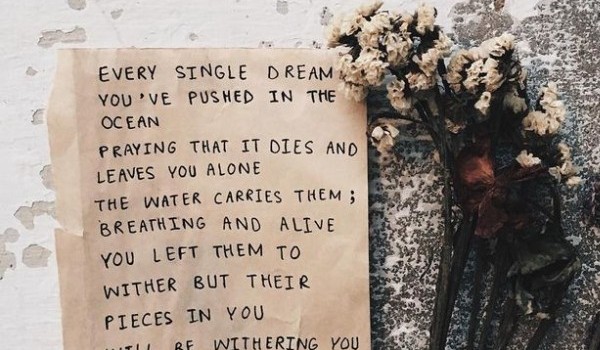 EVERY SINGLE DREAM
YOU'VE PUSHED IN THE
OCEAN
PRAYING THAT IT DIES AND
LEAVES YOU ALONE
THE WATER CARRIES THEM;
BREATHING AND ALIVE
YOU LEFT THEM TO
WITHER BUT THEIR
PIECES IN YOU
WILL BE WITHERING YOU